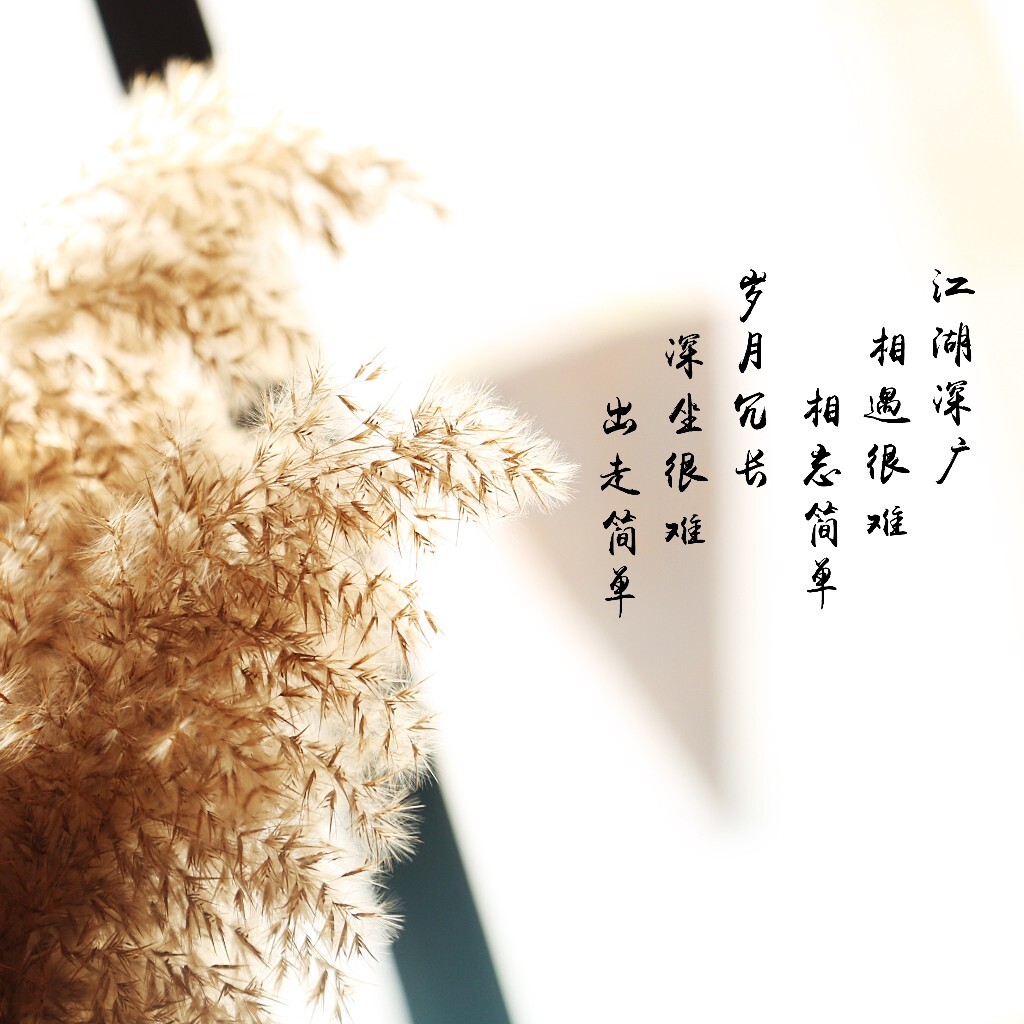 江湖深广
相遇很难
相忘简单
岁月冗长
深坐很难
出走简单